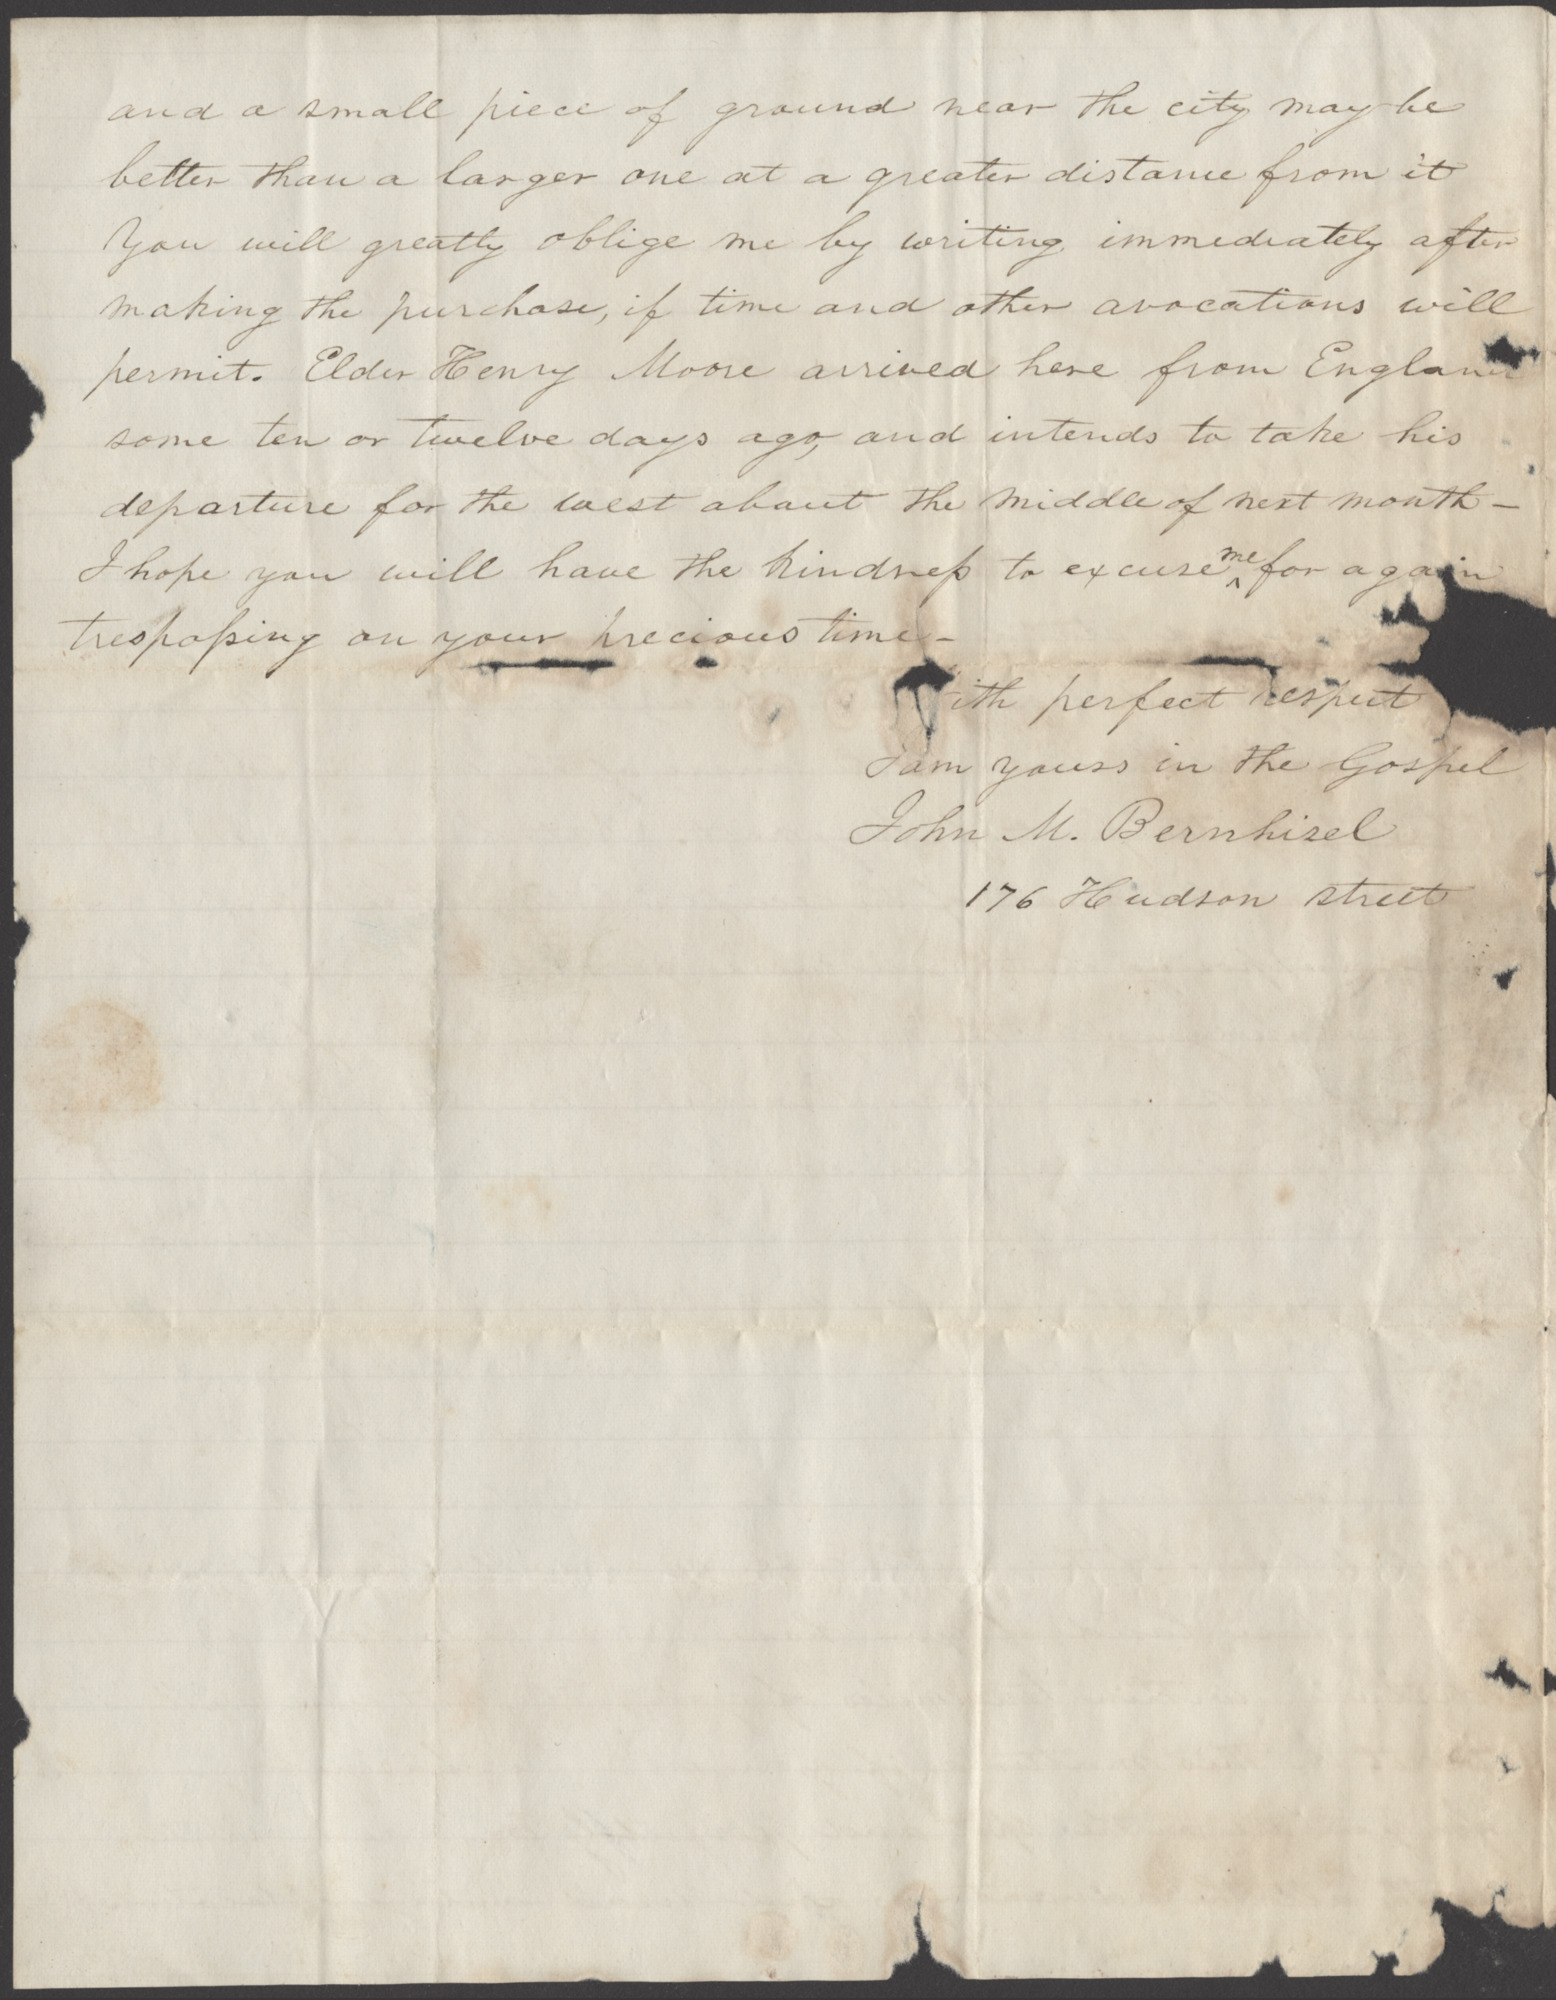 and a small piece of ground near the city may be
better than a larger one at a greater distance from it
You will greatly oblige me by writing immediately after
making the purchase, if time and other avocations will
permit. Elder Henry Moore arrived here from England
some ten or twelve days ago, and intends to take his
departure for the west about the middle of next month –
I hope you will have the kindness to excuse me for again
trespassing on your precious time –
With perfect respect
I am yours in the Gospel
John M. Bernhisel
176 Hudson street